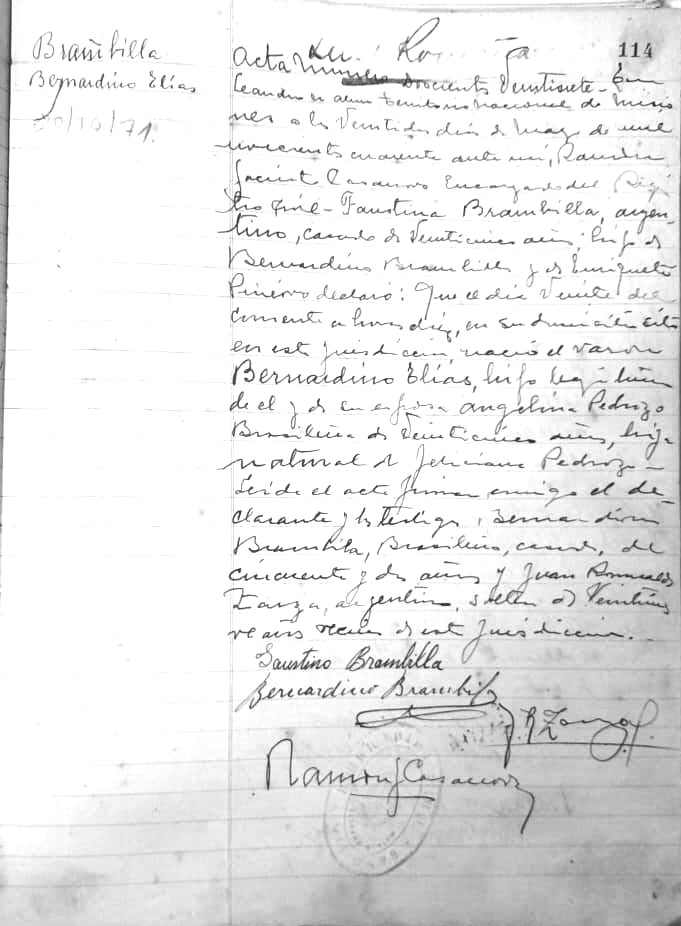 114
Brambilla
Bernardino Elías
20/10/71.
Acta número Doscientos Veintisiete - En
Leandro N alem Territorio nacional de Misio
nes a los Veintidos dias de Mayo de mil
novecientos cuarenta ante mí, Ramón
Jacinto Casanova Encargado del Regis
tro Civil - Faustino Brambilla, argen-
tino, casado de Veinticinco años, hijo de
Bernardino Brambilla y de Enriqueta
declaró: Que el día Veinte del
corriente a horas diez, en su domicilio sito
en esta jurisdiccion, nació el varon
Bernardino Elías, hijo legítimo
de el y de su esposa angelina Pedrozo
Brasileña de Veinticinco años, hija
natural de Feliciana Pedrozo -
Leída el acta firman conmigo el de-
clarante y los testigos, Bernardino
Brambila, Brasileño, casado, de
cincuenta y dos años y Juan Romualdo
Zarza, argentino, soltero de Veintinue
ve años vecinos de esta Jurisdiccion. -
Faustino Brambilla
Bernardino Brambila
J. R. Zarza
Ramon J Casanova